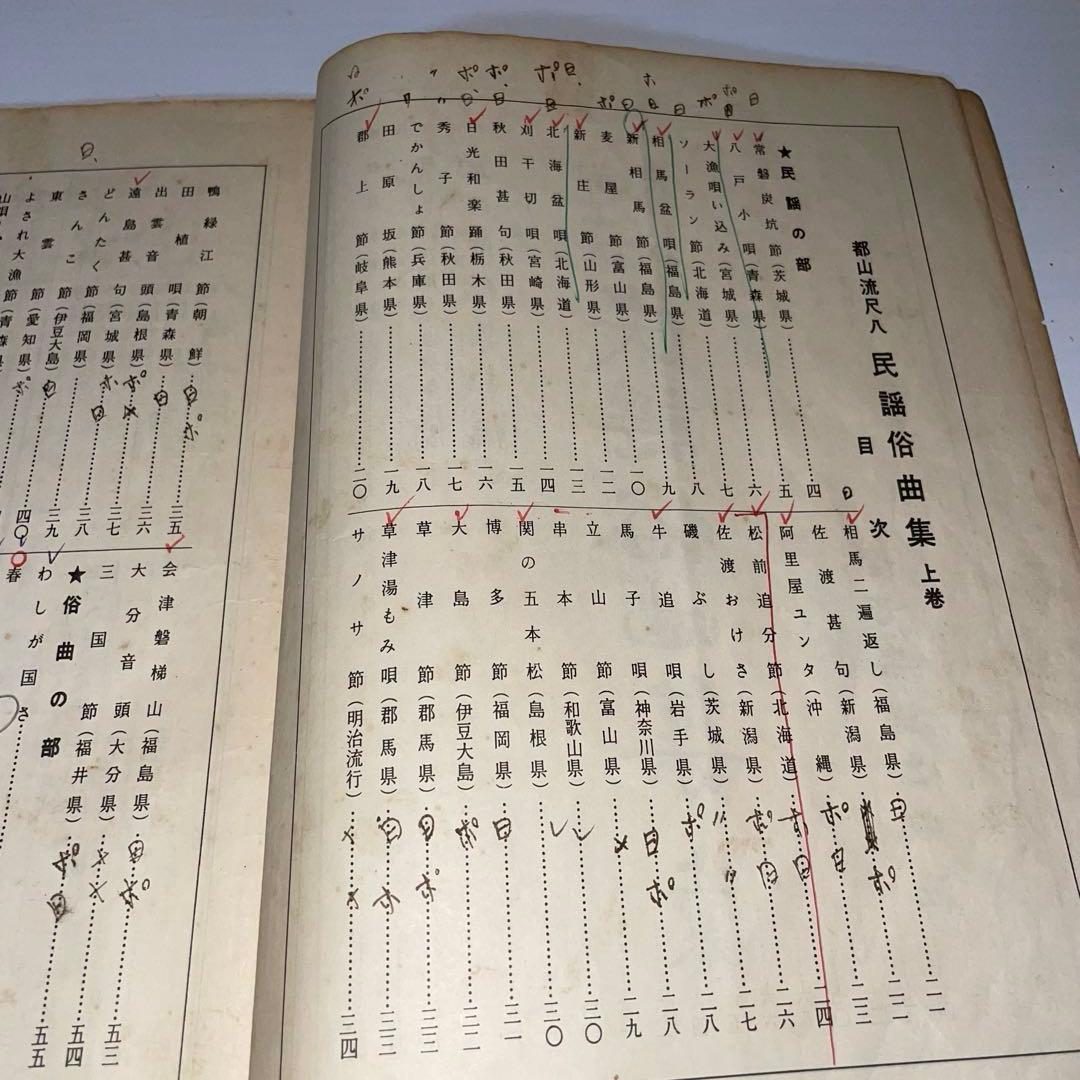 都山流尺八 民謡俗曲集 上巻
目次
★民謡の部
常磐炭坑節(茨城県)……四
八戸小唄(青森県)……五
大漁唄い込み(宮城県)……六
ソーラン節(北海道)……七
相馬盆唄(福島県)……八
新相馬節(福島県)……九
麦屋節(富山県)……一〇
新庄節(山形県)……一二
北海盆唄(北海道)……一三
刈干切唄(宮崎県)……一四
秋田甚句(秋田県)……一五
日光和楽踊(栃木県)……一六
秀子節(秋田県)……一七
でかんしょ節(兵庫県)……一八
田原坂(熊本県)……一九
郡上節(岐阜県)……二〇
相馬二遍返し(福島県)……二一
佐渡甚句(新潟県)……二二
阿里屋ユンタ(沖縄)……二三
松前追分節(北海道)……二四
佐渡おけさ(新潟県)……二六
磯ぶし(茨城県)……二七
牛追唄(岩手県)……二八
馬子唄(神奈川県)……二八
立山節(富山県)……二九
串本節(和歌山県)……三〇
関の五本松(島根県)……三〇
博多節(福岡県)……三一
大島節(伊豆大島)……三二
草津節(郡馬県)……三三
草津湯もみ唄(郡馬県)……三三
サノサ節(明治流行)……三四
鴨緑江節(朝鮮)……三五
田植唄(青森県)……三六
出雲音頭(島根県)……三七
遠島甚句(宮城県)……三八
どんたく節(福岡県)……三九
さんこ節(伊豆大島)……四〇
東雲節(愛知県)
よされ大漁節(青森県)
会津磐梯山(福島県)……五三
大分音頭(大分県)……五四
三国節(福井県)……五五
★俗曲の部
わしが国さ
春